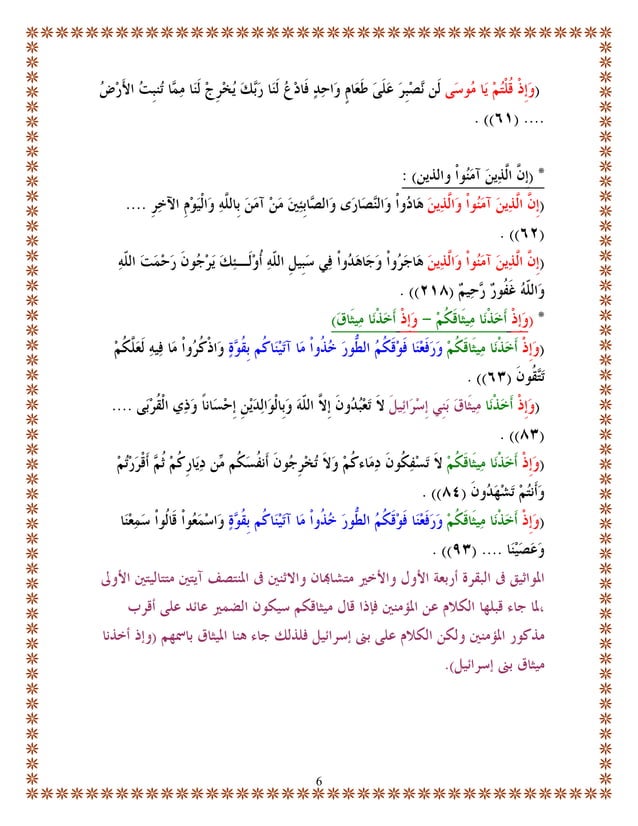 (وَإِذْ قُلْتُمْ يَا مُوسَى لَن نَّصْبِرَ عَلَىَ طَعَامٍ وَاحِدٍ فَادْعُ لَنَا رَبَّكَ يُخْرِجْ لَنَا مِمَّا تُنبِتُ الأَرْضُ
.... (٦١)) .
* (إِنَّ الَّذِينَ آمَنُواْ والذين) :
(إِنَّ الَّذِينَ آمَنُواْ وَالَّذِينَ هَادُواْ وَالنَّصَارَى وَالصَّابِئِينَ مَنْ آمَنَ بِاللَّهِ وَالْيَوْمِ الآخِرِ ....
(٦٢)) .
(إِنَّ الَّذِينَ آمَنُواْ وَالَّذِينَ هَاجَرُواْ وَجَاهَدُواْ فِي سَبِيلِ اللّهِ أُوْلَـــئِكَ يَرْجُونَ رَحْمَتَ اللّهِ
وَاللّهُ غَفُورٌ رَّحِيمٌ (٢١٨)) .
* (وَإِذْ أَخَذْنَا مِيثَاقَكُمْ – وَإِذْ أَخَذْنَا مِيثَاقَ)
(وَإِذْ أَخَذْنَا مِيثَاقَكُمْ وَرَفَعْنَا فَوْقَكُمُ الطُّورَ خُذُواْ مَا آتَيْنَاكُم بِقُوَّةٍ وَاذْكُرُواْ مَا فِيهِ لَعَلَّكُمْ
تَتَّقُونَ (٦٣)) .
(وَإِذْ أَخَذْنَا مِيثَاقَ بَنِي إِسْرَائِيلَ لاَ تَعْبُدُونَ إِلاَّ اللّهَ وَبِالْوَالِدَيْنِ إِحْسَاناً وَذِي الْقُرْبَى ....
(٨٣)) .
(وَإِذْ أَخَذْنَا مِيثَاقَكُمْ لاَ تَسْفِكُونَ دِمَاءكُمْ وَلاَ تُخْرِجُونَ أَنفُسَكُم مِّن دِيَارِكُمْ ثُمَّ أَقْرَرْتُمْ
وَأَنتُمْ تَشْهَدُونَ (٨٤)) .
(وَإِذْ أَخَذْنَا مِيثَاقَكُمْ وَرَفَعْنَا فَوْقَكُمُ الطُّورَ خُذُواْ مَا آتَيْنَاكُم بِقُوَّةٍ وَاسْمَعُواْ قَالُواْ سَمِعْنَا
وَعَصَيْنَا .... (٩٣)) .
المواثيق فى البقرة أربعة الأول والأخير متشابهان والاثنين فى المنتصف آيتين متتاليتين الأولى
،لما جاء قبلها الكلام عن المؤمنين فإذا قال ميثاقكم سيكون الضمير عائد على أقرب
مذكور المؤمنين ولكن الكلام على بنى إسرائيل فلذلك جاء هنا الميثاق باسمهم (وإذ أخذنا
ميثاق بنى إسرائيل).
6